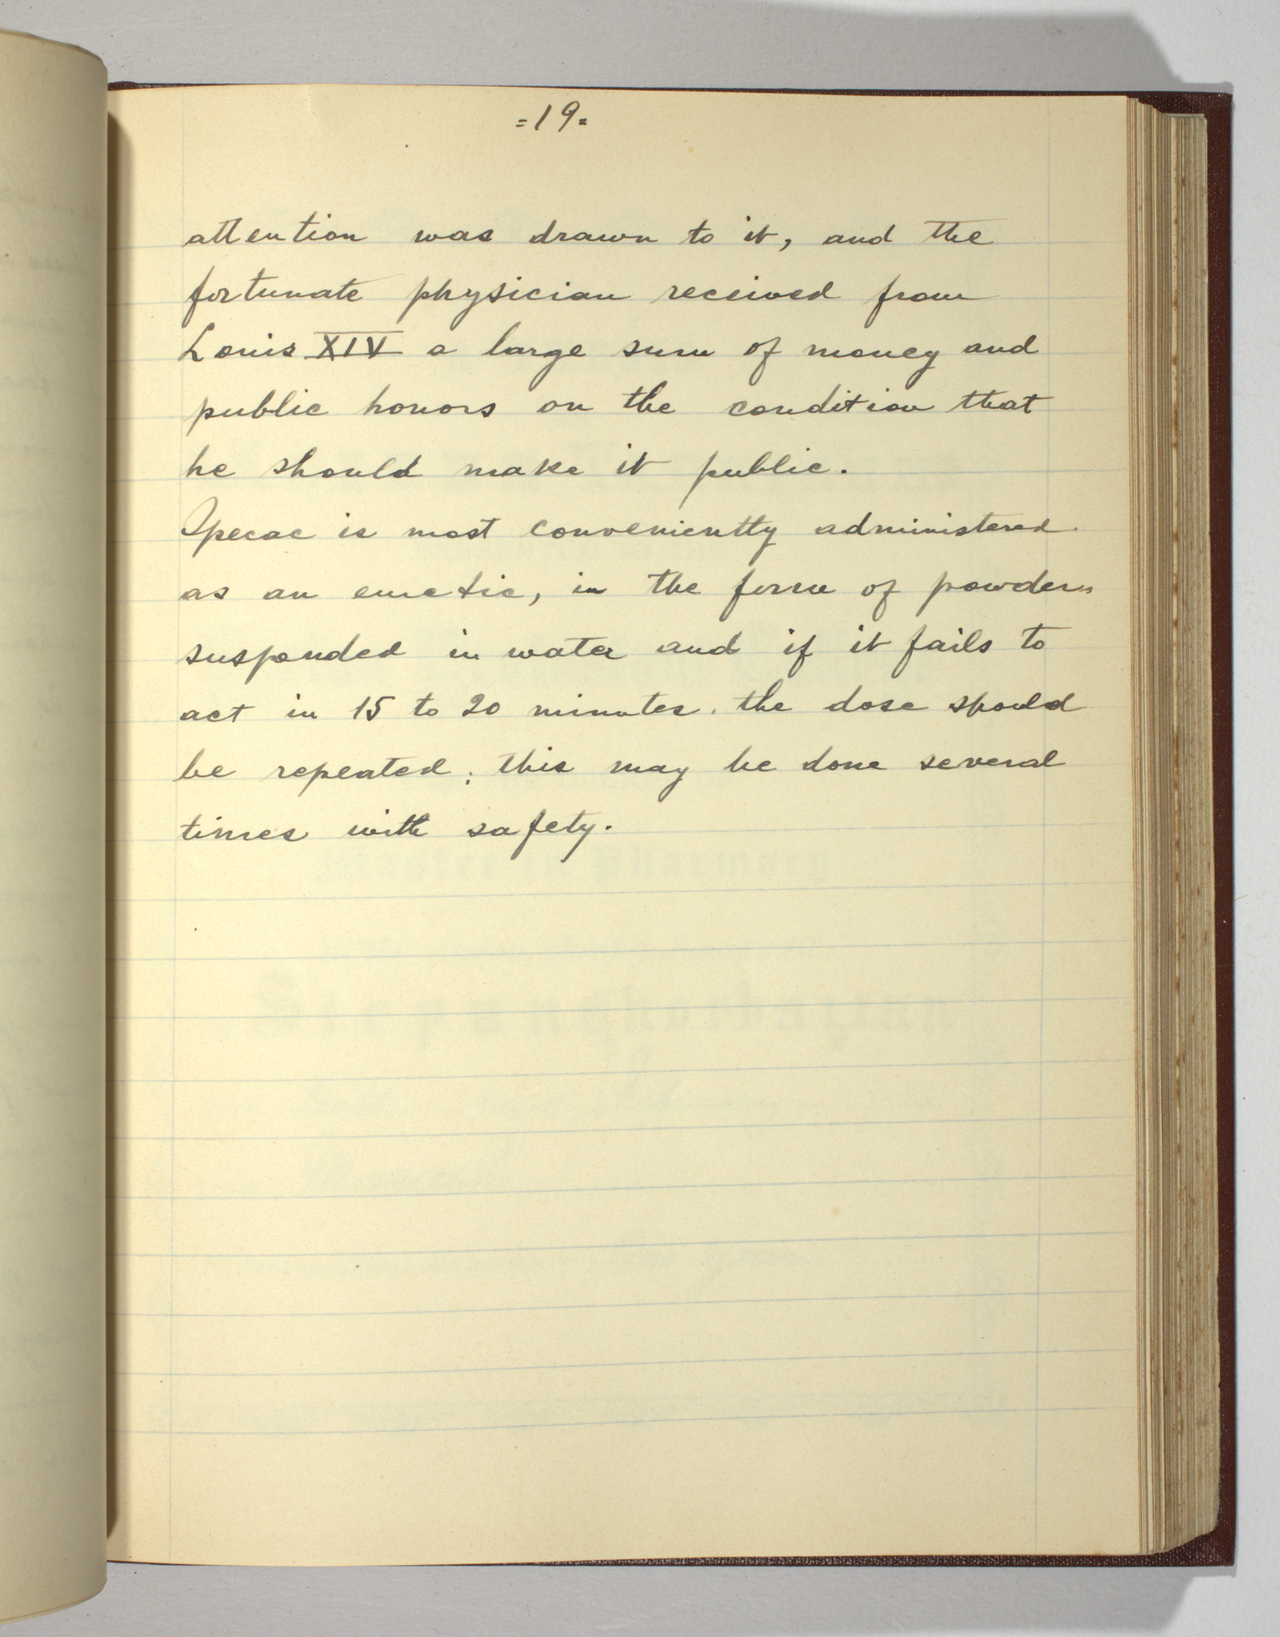 =19=
attention was drawn to it, and the
fortunate physician received from
Louis XIV a large sum of money and
public honors on the condition that
he should make it public.
Ipecac is most conveniently administered
as an emetic, in the form of powders
suspended in water and if it fails to
act in 15 to 20 minutes. the dose should
be repeated; this may be done several
times with safety.
Master in Pharmacy